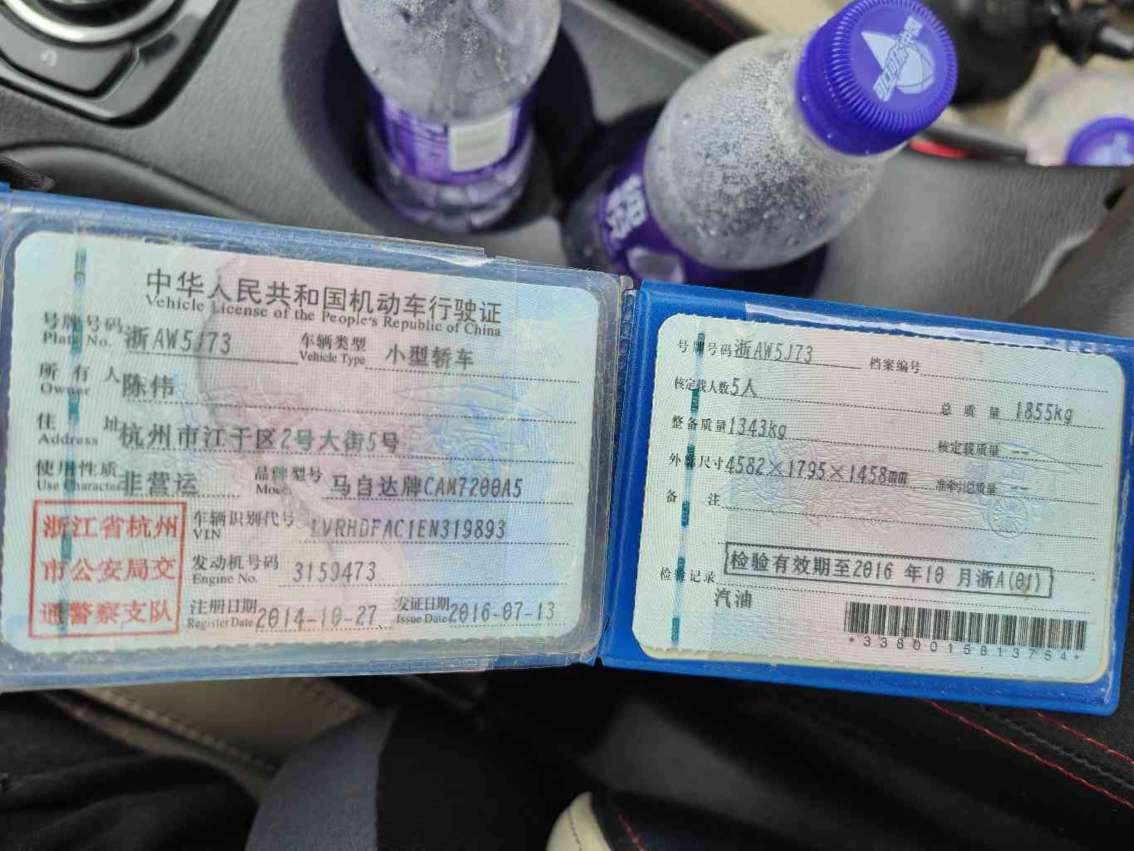 中华人民共和国机动车行驶证
Vehicle License of the People's Republic of China
号牌号码 浙AW5J73 车辆类型 小型轿车
Plate No. Vehicle Type
所有人 陈伟
Owner
住址 杭州市江干区2号大街5号
Address
使用性质 非营运 品牌型号 马自达牌CAM7200A5
Use Character Model
浙江省杭州
市公安局交
通警察支队
车辆识别代号 LVRHDFAC1EN319893
VIN
发动机号码 3159473
Engine No.
注册日期 2014-10-27 发证日期 2016-07-13
Register Date Issue Date
号牌号码 浙AW5J73 档案编号
核定载人数 5人 总质量 1855kg
整备质量 1343kg 核定载质量 --
外廓尺寸 4582×1795×1458mm 准牵引总质量 --
备注
检验记录 检验有效期至2016 年10 月浙A(01)
汽油
*3380015813754*